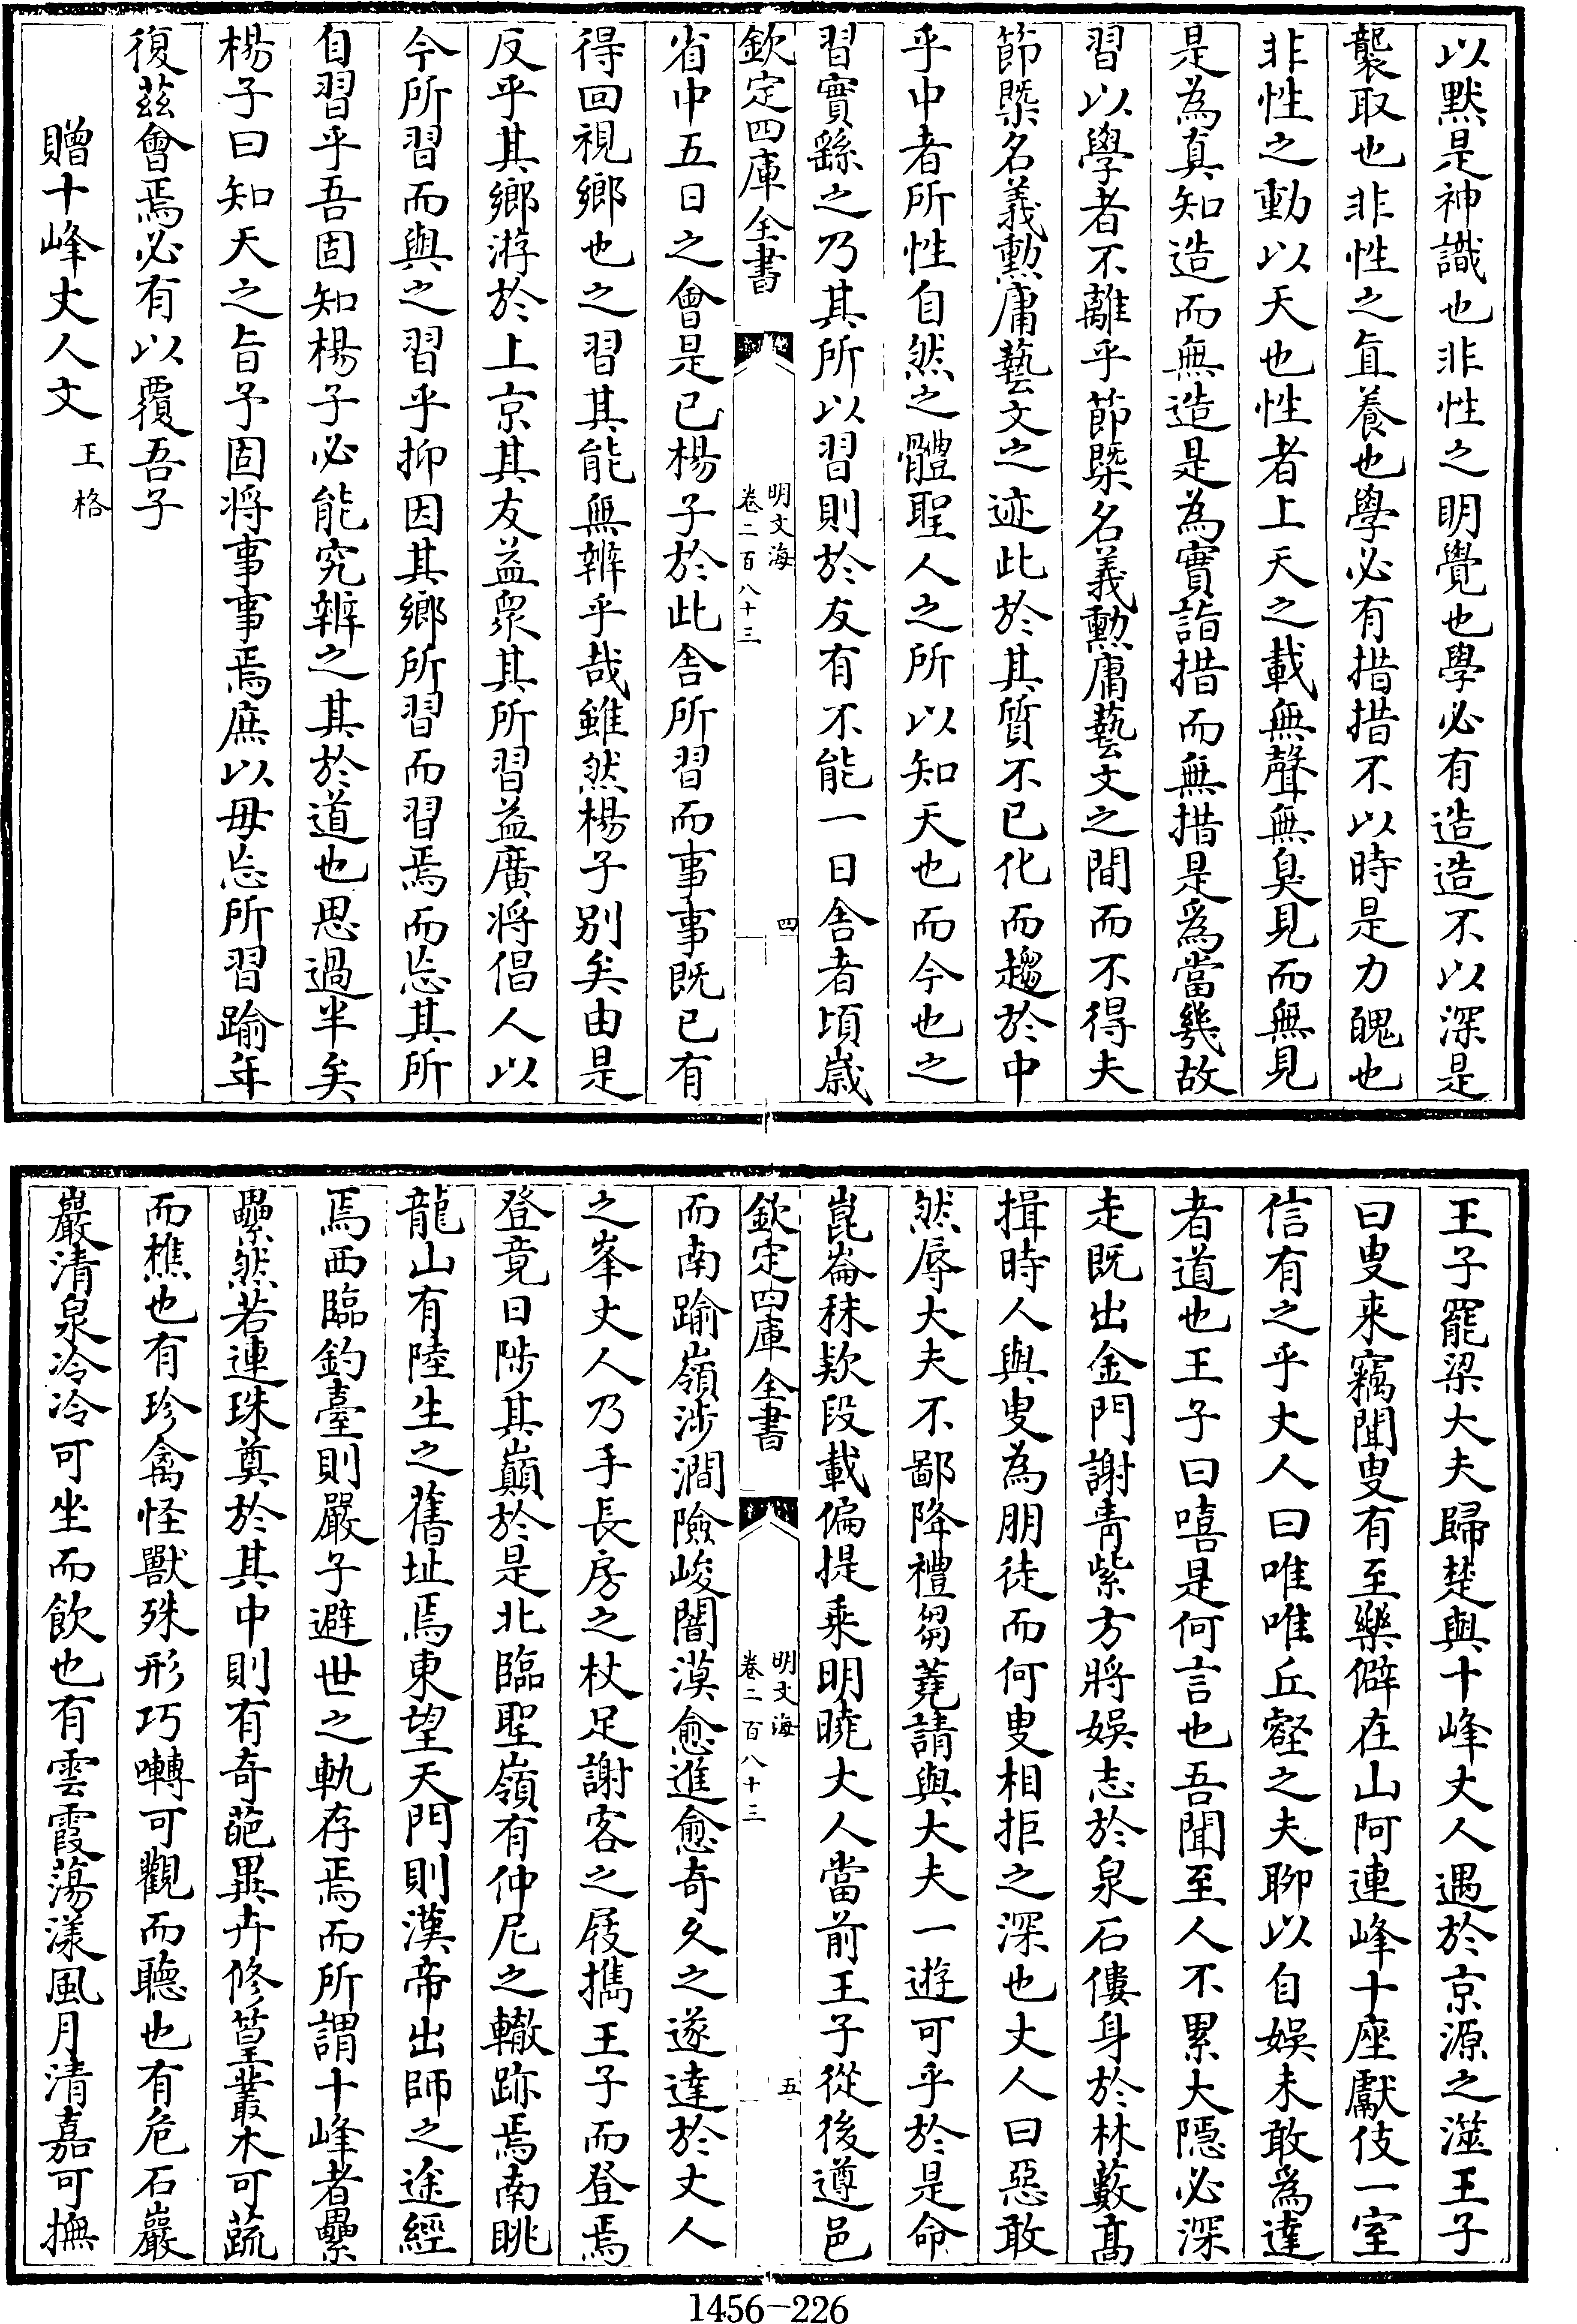 以默是神識也非性之明覺也學必有造造不以深是
襲取也非性之直養也學必有措措不以時是力醜也
非性之動以天也性者上天之載無聲無臭見而無見
是為真知造而無造是為實詣措而無措是爲當幾故
習以學者不離乎節槩名義勲庸藝文之間而不得夫
節槩名義勲庸藝文之迹此於其質不已化而趨於中
乎中者所性自然之體聖人之所以知天也而今也之
習實繇之乃其所以習則於友有不能一日舎者頃嵗
欽定四庫全書
明文海
卷二百八十三
四
省中五日之會是已楊子於此舎所習而事事既已有
得回視鄉也之習其能無辨乎哉雖然楊子别矣由是
反乎其鄉游於上京其友益衆其所習益廣將倡人以
今所習而與之習乎抑因其鄉所習而習焉而忘其所
自習乎吾固知楊子必能究辨之其於道也思過半矣
楊子曰知天之旨予固將事事焉庶以毋忘所習踰年
復茲會焉必有以覆吾子
贈十峰丈人文
王格
王子罷梁大夫歸楚與十峰丈人遇於京源之澨王子
曰叟来竊聞叟有至樂僻在山阿連峰十座獻伎一室
信有之乎丈人曰唯唯丘壑之夫聊以自娛未敢爲達
者道也王子曰嘻是何言也吾聞至人不累大隱必深
走既出金門謝青紫方將娛志於泉石僂身於林藪髙
揖時人與叟為朋徒而何叟相拒之深也丈人曰惡敢
然辱大夫不鄙降禮芻蕘請與大夫一遊可乎於是命
崑崙秣欵段載偏提乘明曉丈人當前王子從後遵邑
欽定四庫全書
明文海
卷二百八十三
五
而南踰嶺渉澗險峻闇漠愈進愈奇久之遂達於丈人
之峯丈人乃手長房之杖足謝客之屐攜王子而登焉
登竟日陟其巔於是北臨聖嶺有仲尼之轍跡焉南眺
龍山有陸生之舊址焉東望天門則漢帝出師之途經
焉西臨釣臺則嚴子避世之軌存焉而所謂十峰者纍
纍然若連珠奠於其中則有奇葩異卉修篁叢木可蔬
而樵也有珍禽怪獸殊形巧囀可觀而聽也有危石巖
巖清泉冷冷可坐而飲也有雲霞蕩漾風月清嘉可撫
1456-226